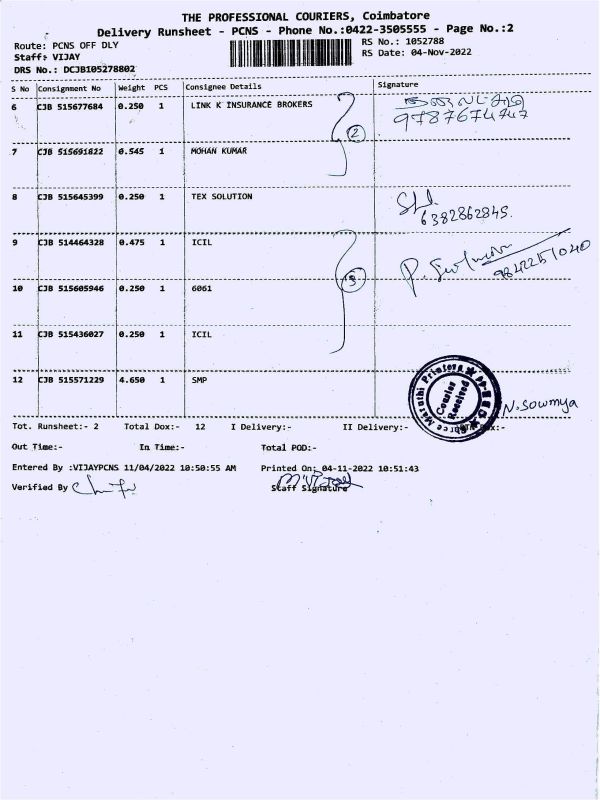 THE PROFESSIONAL COURIERS, Coimbatore
Delivery Runsheet - PCNS - Phone No.:0422-3505555 - Page No.:2
Route: PCNS OFF DLY RS No.: 1052788
Staff: VIJAY RS Date: 04-Nov-2022
DRS No.: DCJB105278802
S No Consignment No Weight PCS Consignee Details Signature
6 CJB 515677684 0.250 1 LINK K INSURANCE BROKERS
9787674747
2
7 CJB 515691822 0.545 1 MOHAN KUMAR
8 CJB 515645399 0.250 1 TEX SOLUTION
6382862845.
9 CJB 514464328 0.475 1 ICIL
9842251040
3
10 CJB 515605946 0.250 1 6061
11 CJB 515436027 0.250 1 ICIL
12 CJB 515571229 4.650 1 SMP
Shree Maruthi Printers
Courier
Received
N.Sowmya
Tot. Runsheet:- 2 Total Dox:- 12 I Delivery:- II Delivery:-
Out Time:- In Time:- Total POD:-
Entered By :VIJAYPCNS 11/04/2022 10:50:55 AM Printed On: 04-11-2022 10:51:43
Verified By Staff Signature